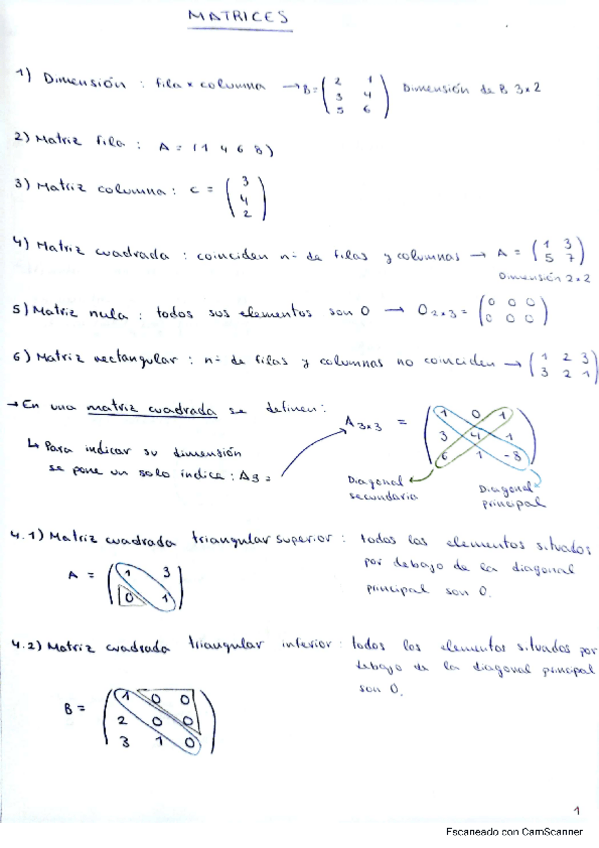 MATRICES
1) Dimensión : fila × columna → B = ( 2 1 Dimensión de B 3×2
3 4
5 6 )
2) Matriz fila : A = (1 4 6 8)
3) Matriz columna : C = ( 3
4
2 )
4) Matriz cuadrada : coinciden nº de filas y columnas → A = ( 1 3
5 7 )
Dimensión 2×2
5) Matriz nula : todos sus elementos son 0 → O2×3 = ( 0 0 0
0 0 0 )
6) Matriz rectangular : nº de filas y columnas no coinciden → ( 1 2 3
3 2 1 )
→ En una matriz cuadrada se definen :
A3×3 = ( 1 0 1
3 4 1
6 1 -8 )
↳ Para indicar su dimensión
se pone un solo indice : A3 =
Diagonal
secundaria
Diagonal
principal
4.1) Matriz cuadrada triangular superior : todos los elementos situados
por debajo de la diagonal
principal son 0.
A = ( 1 3
0 1 )
4.2) Matriz cuadrada triangular inferior : todos los elementos situados por
debajo de la diagonal principal
son 0.
B = ( 1 0 0
2 0 0
3 1 0 )
1
Escaneado con CamScanner